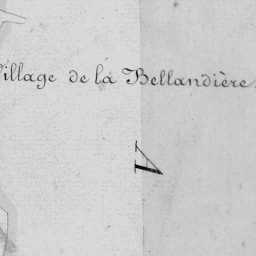 Village de la Bellandière.
A